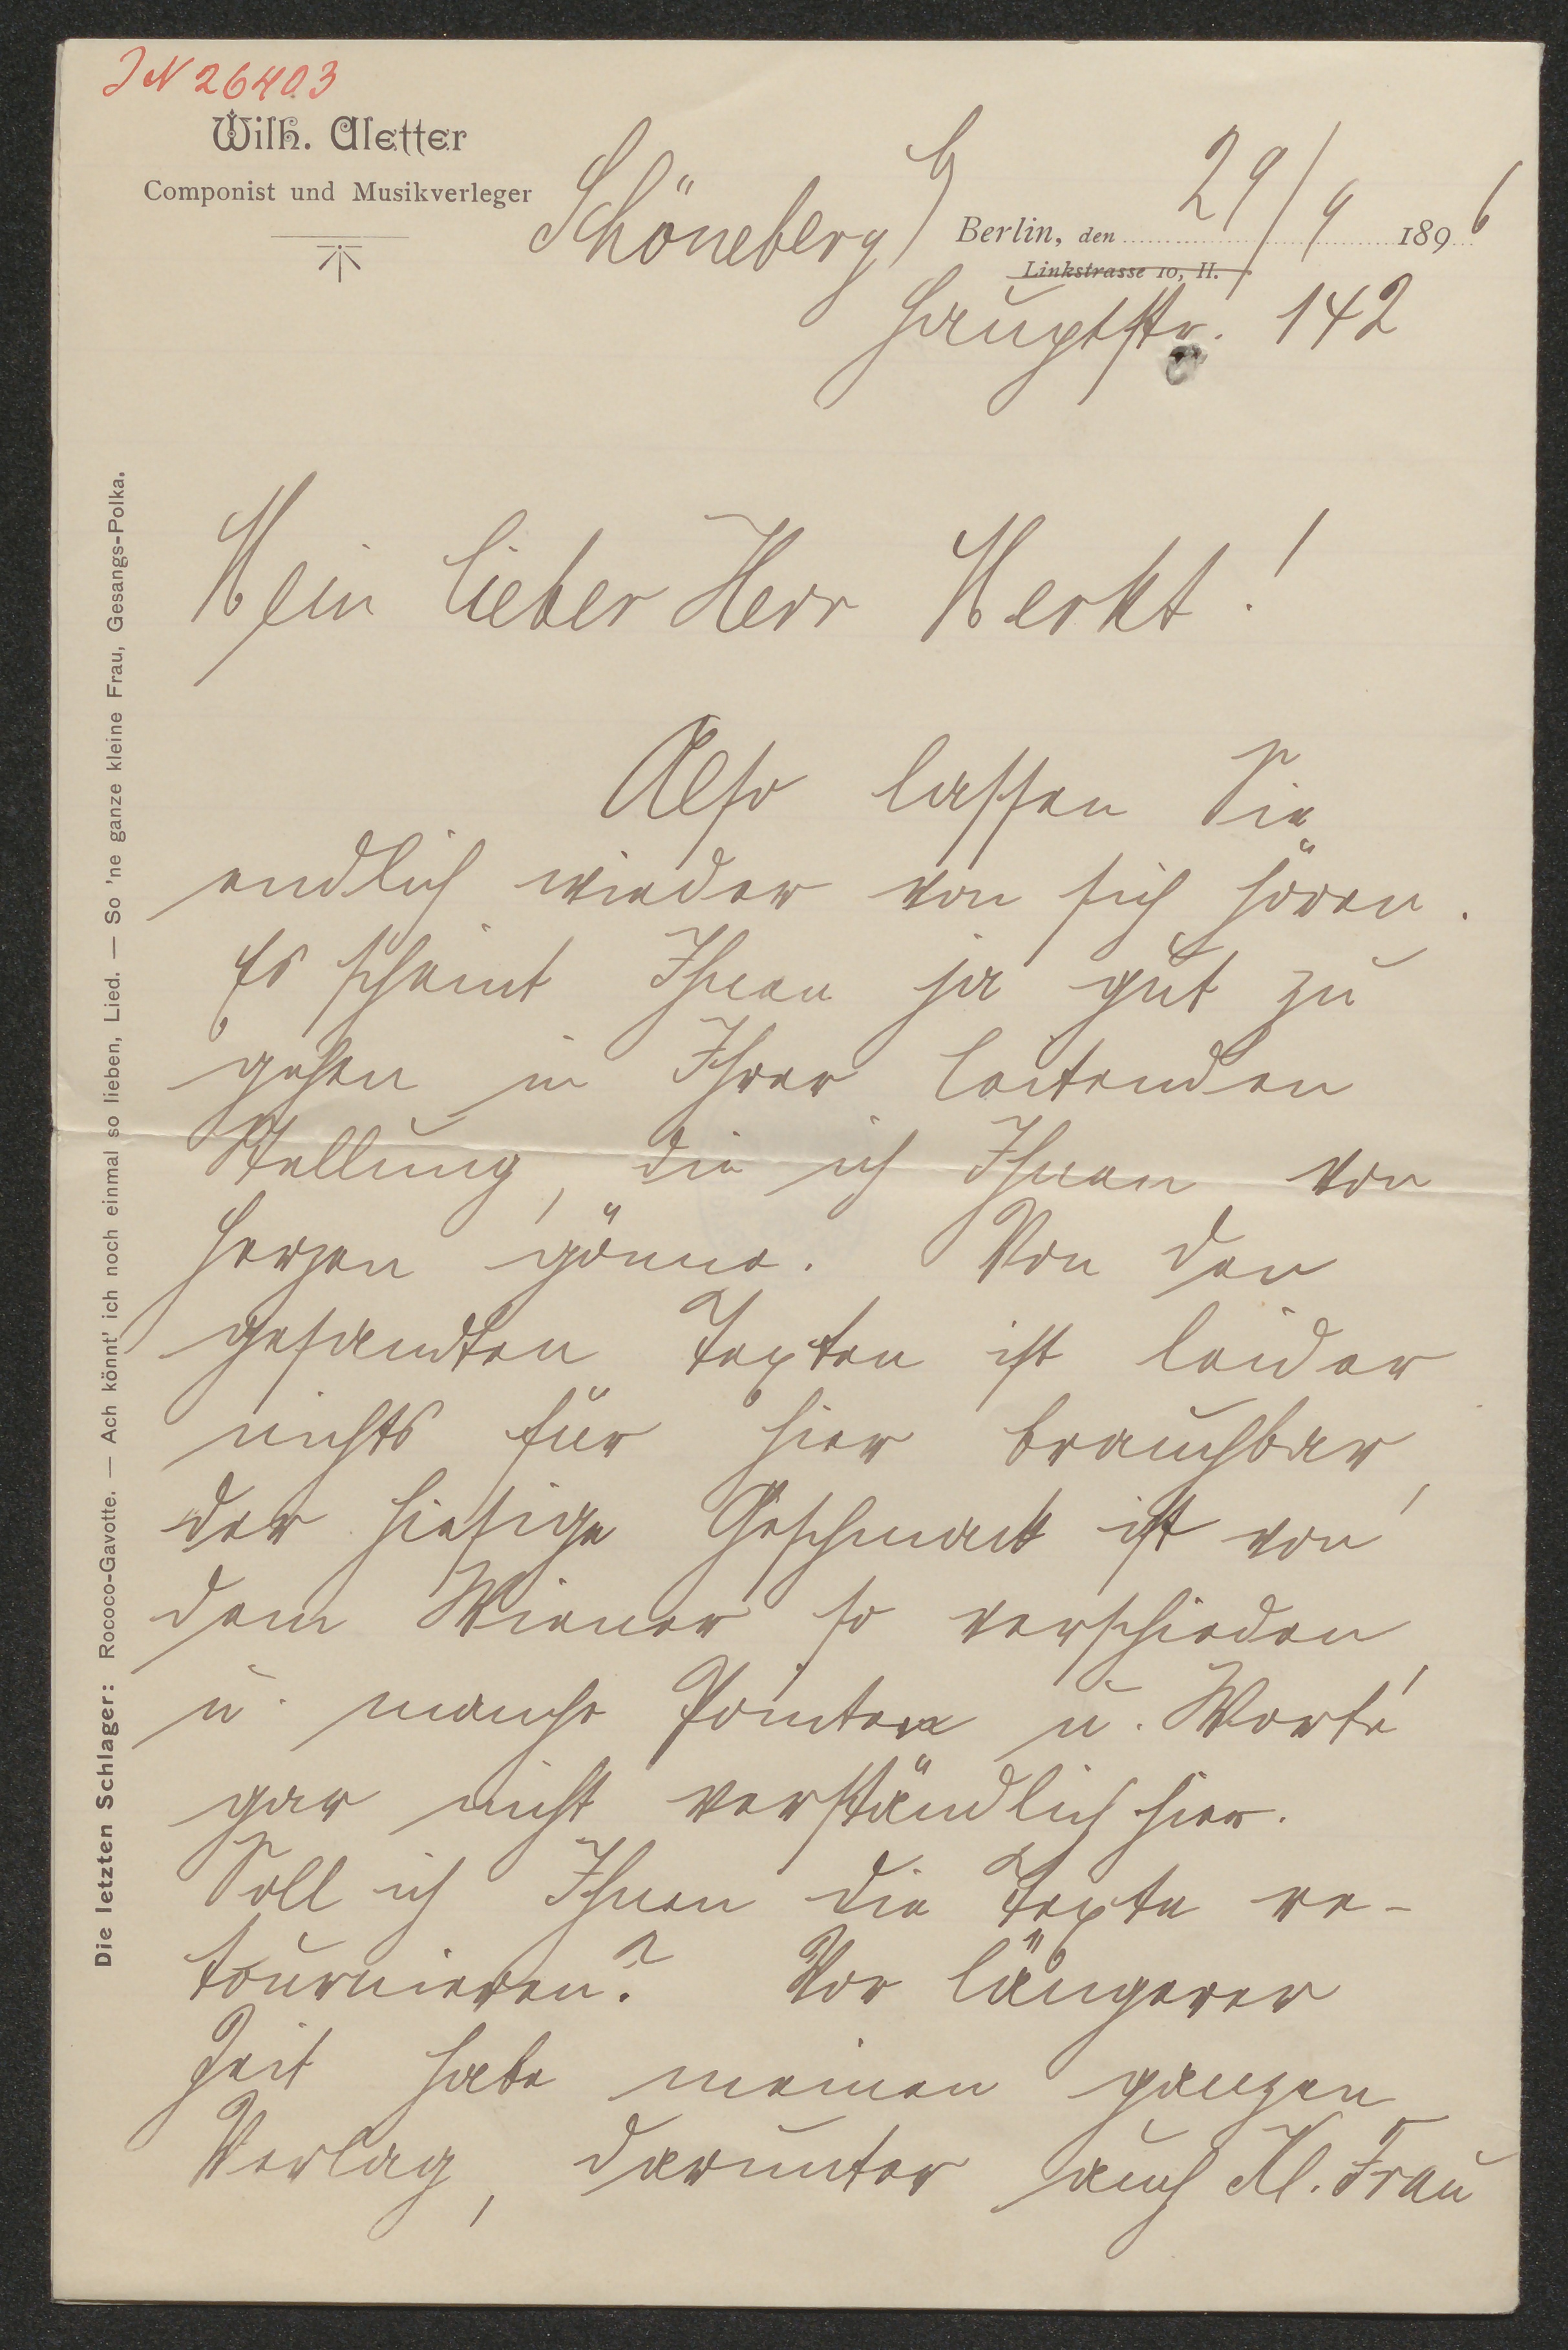 JN 26403
Wilh. Aletter
Componist und Musikverleger
Schöneberg b/ Berlin, den 29/9 1896
Linkstrasse 10, II.
Hauptstr. 142
Mein lieber Herr Merkt!
Also lassen Sie
endlich wieder von sich hören.
Es scheint Ihnen ja gut zu
gehen in Ihrer leitenden
Stellung, die ich Ihnen von
Herzen gönne. Von den
gesandten Texten ist leider
nichts für hier brauchbar,
der hiesige Geschmack ist von
dem Wiener so verschieden,
u. manche Pointen u. Worte
gar nicht verständlich hier.
Soll ich Ihnen die Texte re-
tournieren? Vor längerer
Zeit habe meinen ganzen
Verlag, darunter auch Kl. Frau
Die letzten Schlager: Rococo-Gavotte. — Ach könnt' ich noch einmal so lieben, Lied. — So 'ne ganze kleine Frau, Gesangs-Polka.